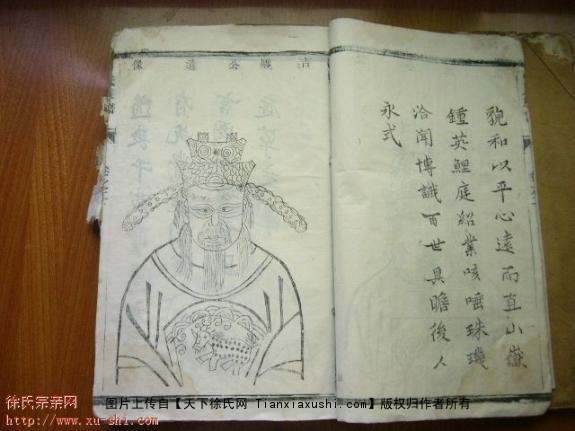 貌和以平心遠而直山嶽
鍾英鯉庭紹業咳唾珠璣
洽聞博識百世具瞻後人
永式
清巖公遺像
徐氏宗亲网
http://www.xu-shi.com/
图片上传自【天下徐氏网 Tianxiaxushi.com】版权归作者所有